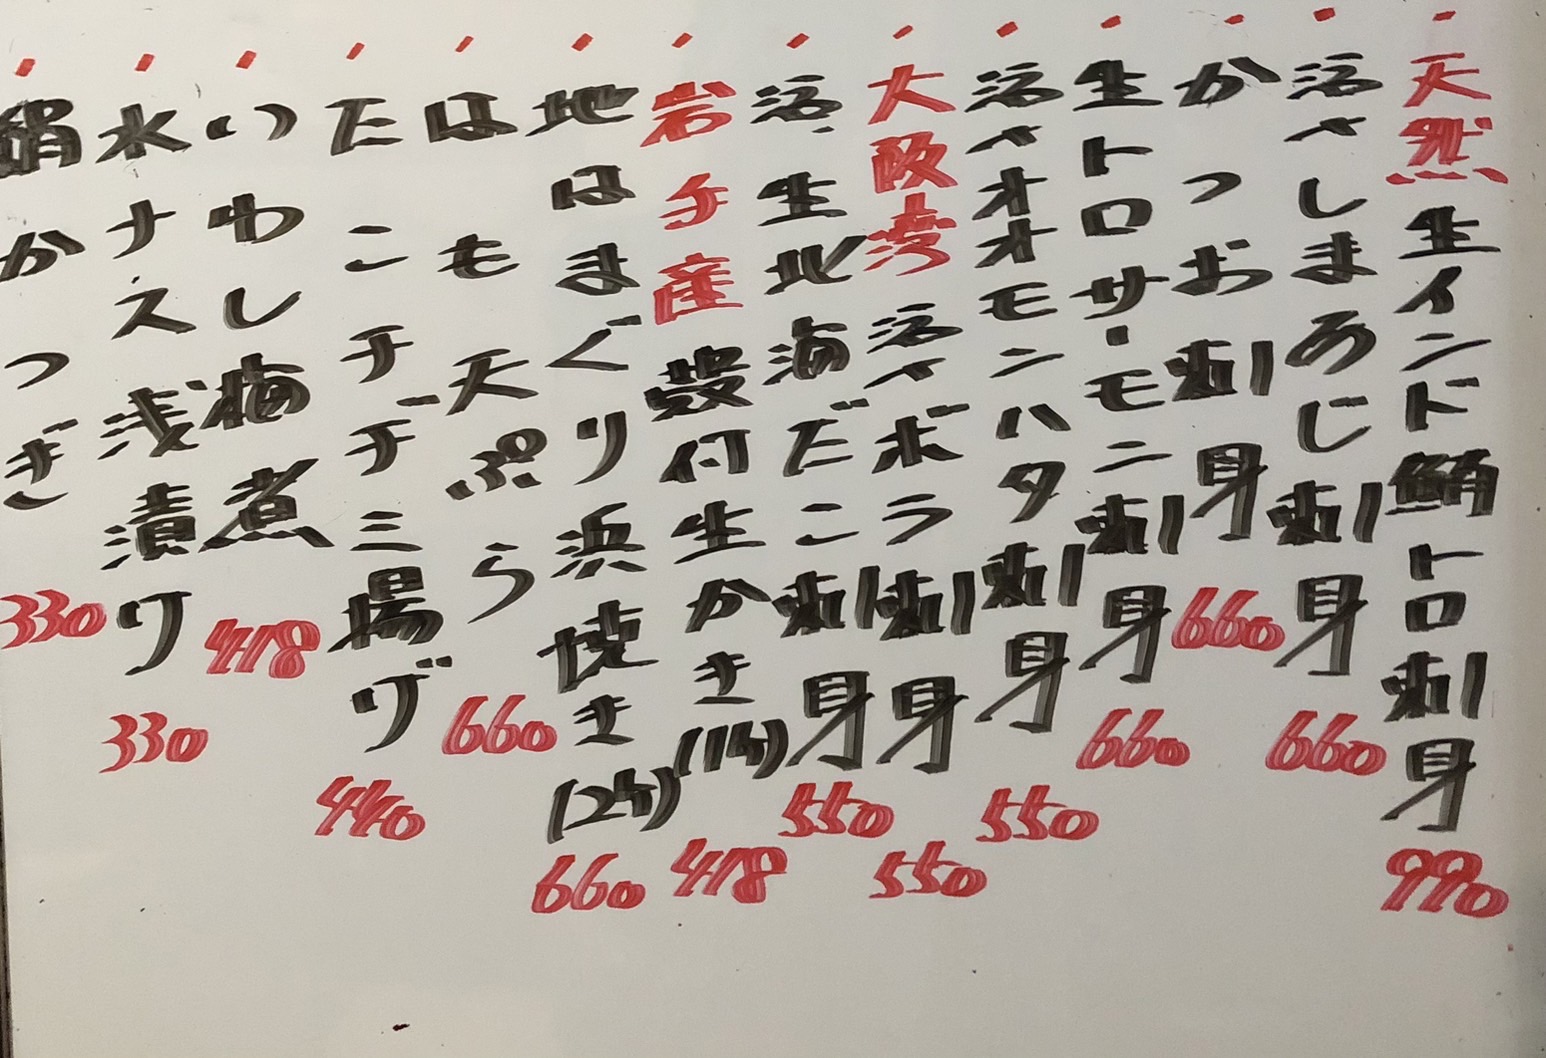 天然生インド鮪トロ刺身 990
活〆しまあじ刺身 660
かつお刺身 660
生トロサーモン刺身 660
活〆オオモンハタ刺身 550
大阪湾活〆ボラ刺身 550
活生地海だこ刺身 550
岩手産殻付生かき(1ヶ) 418
地はまぐり浜焼き(2ヶ) 660
はも天ぷら 660
たこチーデー三揚げ 440
いわし梅煮 418
水ナス浅漬け 330
絹かつぎ 330